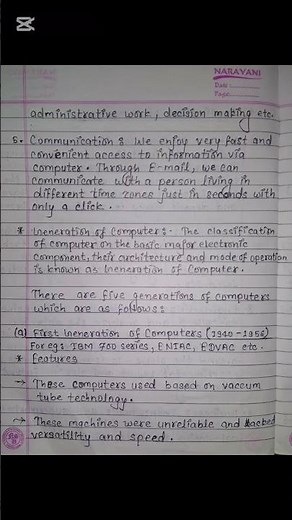 NARAYANI
Date:
Page:
administrative work, decision making etc.
5. Communication : We enjoy very fast and
convenient access to information via
computer. Through E-mail, we can
communicate with a person living in
different time zones just in seconds with
only a click.
* Generation of Computer:- The classification
of computer on the basic major electronic
component, their architecture and mode of operation
is known as Generation of Computer.
There are five generations of computers
which are as follows:
(a) First Generation of Computers (1940-1956)
For eg: IBM 700 series, ENIAC, EDVAC etc.
* features
→ These computers used based on vaccum
tube technology.
→ These machines were unreliable and lacked
versatility and speed.